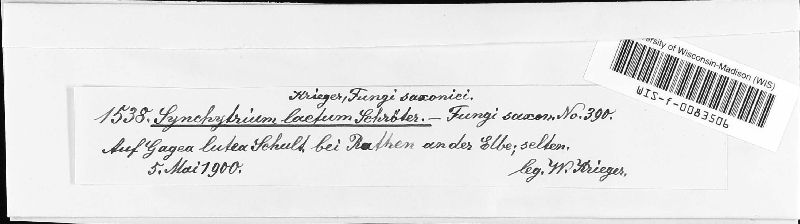 Krieger, Fungi saxonici.
1538. Synchytrium laetum Schröter. — Fungi saxon. No. 390.
Auf Gagea lutea Schult. bei Rathen an der Elbe; selten.
5. Mai 1900. leg. W. Krieger.
ersity of Wisconsin-Madison (WIS)
WIS-f-0083506